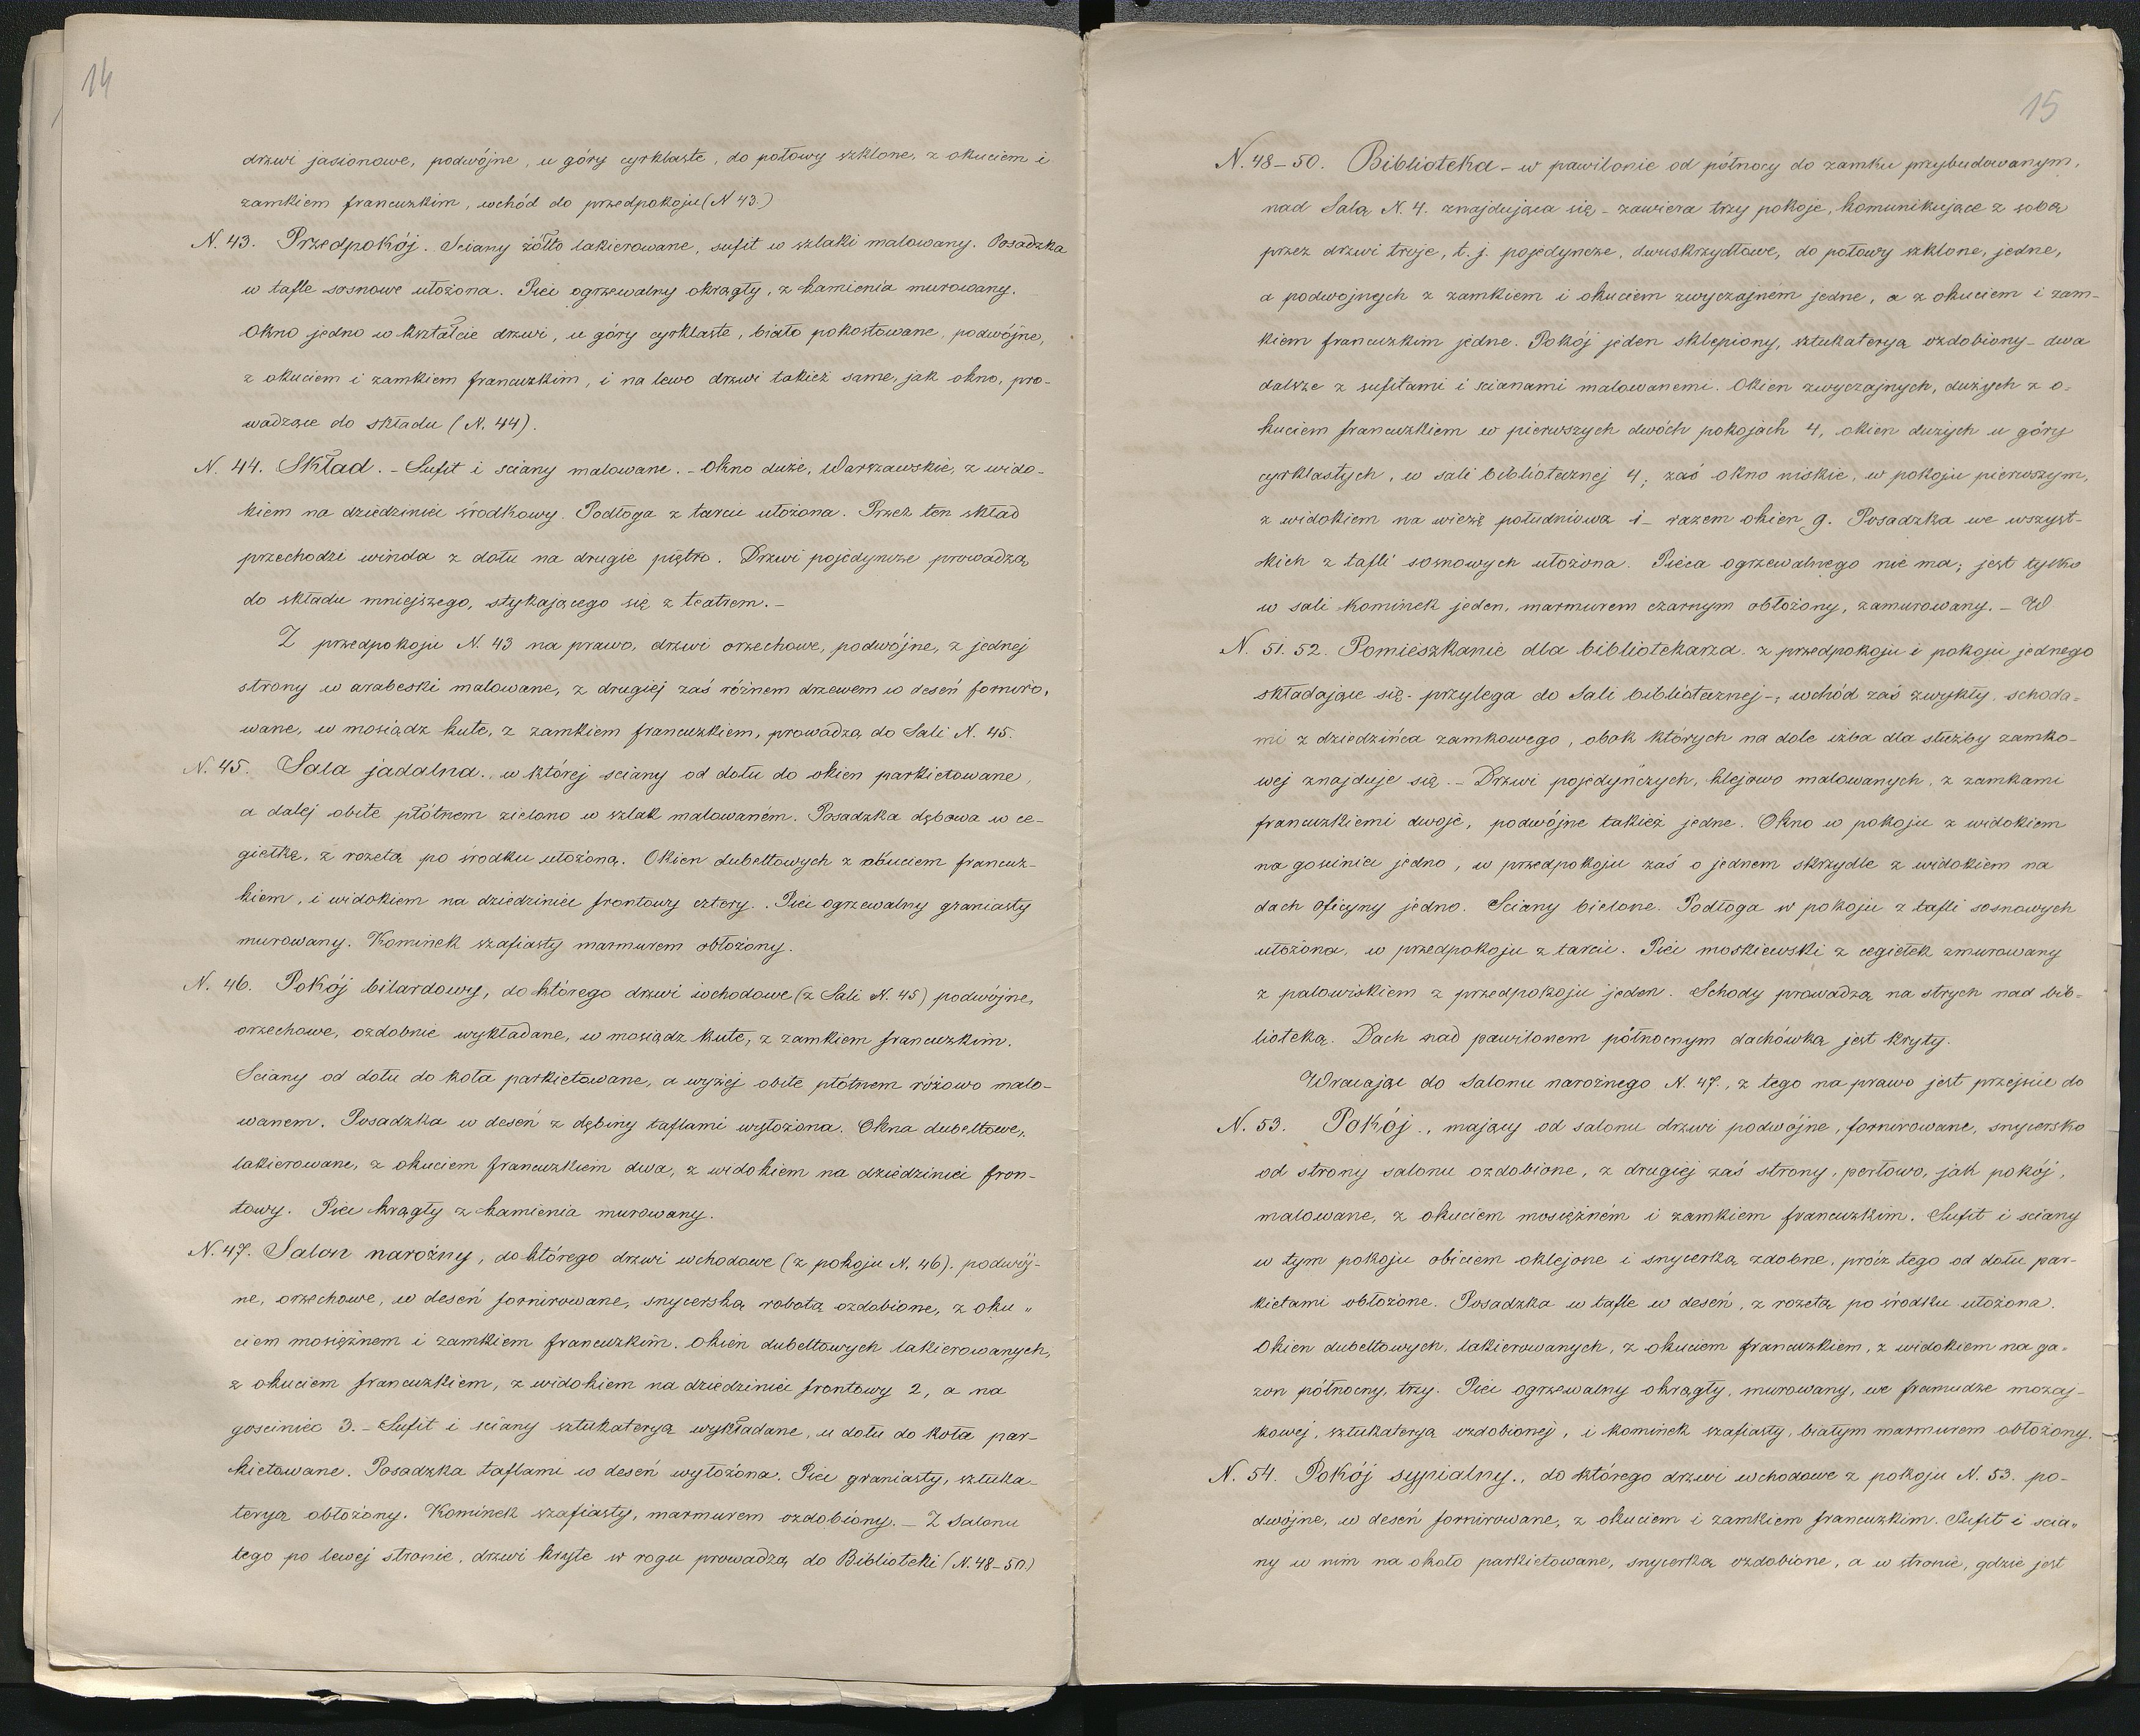 14
drzwi jasionowe, podwójne, u góry cyrklaste, do połowy szklone, z okuciem i
zamkiem francuzkim, wchód do przedpokoju (N 43.)
N. 43. Przedpokój. Sciany żółto lakierowane, sufit w szlaki malowany. Posadzka
w tafle sosnowe ułożona. Piec ogrzewalny okrągły, z kamienia murowany.
Okno jedno w kształcie drzwi, u góry cyrklaste, biało pokostowane, podwójne,
z okuciem i zamkiem francuzkim, i na lewo drzwi takież same, jak okno, pro-
wadzące do składu (N. 44).
N. 44. Skład. - Sufit i sciany malowane. - Okno duże, Warszawskie, z wido-
kiem na dziedziniec środkowy. Podłoga z tarcic ułożona. Przez ten skład
przechodzi winda z dołu na drugie piętro. Drzwi pojedyncze prowadzą
do składu mniejszego, stykającego się z teatrem. -
Z przedpokoju N. 43 na prawo, drzwi orzechowe, podwójne, z jednej
strony w arabeski malowane, z drugiej zaś różnem drzewem w deseń forniro,
wane, w mosiądz kute, z zamkiem francuzkiem, prowadzą do Sali N. 45.
N. 45. Sala jadalna., w której sciany od dołu do okien parkietowane,
a dalej obite płótnem zielono w szlak malowaném. Posadzka dębowa w ce-
giełkę, z rozetą po środku ułożoną. Okien dubeltowych z okuciem francuz-
kiem, i widokiem na dziedziniec frontowy cztery. Piec ogrzewalny graniasty
murowany. Kominek szafiasty marmurem obłożony.
N. 46. Pokój bilardowy, do którego drzwi wchodowe (z Sali N. 45) podwójne,
orzechowe, ozdobnie wykładane, w mosiądz kute, z zamkiem francuzkim.
Sciany od dołu do koła parkietowane, a wyżej obite płótnem różowo malo-
wanem. Posadzka w deseń z dębiny taflami wyłożona. Okna dubeltowe,
lakierowane, z okuciem francuzkiem dwa, z widokiem na dziedziniec fron-
towy. Piec krągły z kamienia murowany.
N. 47. Salon narożny, do którego drzwi wchodowe (z pokoju N. 46). podwój-
ne, orzechowe, w deseń fornirowane, snycerską robotą ozdobione, z oku„
ciem mosiężnem i zamkiem francuzkim. Okien dubeltowych lakierowanych,
z okuciem francuzkiem, z widokiem na dziedziniec frontowy 2, a na
gosciniec 3. - Sufit i sciany sztukateryą wykładane, u dołu do koła par-
kietowane. Posadzka taflami w deseń wyłożona. Piec graniasty, sztuka-
teryą obłożony. Kominek szafiasty, marmurem ozdobiony. - Z Salonu
tego po lewej stronie, drzwi kryte w rogu prowadzą do Biblioteki (N. 48-50.)
15
N. 48-50. Biblioteka - w pawilonie od północy do zamku przybudowanym,
nad Salą N. 4. znajdująca się - zawiera trzy pokoje, komunikujące z sobą
przez drzwi troje, t. j. pojedyncze, dwuskrzydłowe, do połowy szklone, jedne,
a podwojnych z zamkiem i okuciem zwyczajném jedne, a z okuciem i zam-
kiem francuzkim jedne. Pokój jeden sklepiony, sztukateryą ozdobiony - dwa
dalsze z sufitami i scianami malowanemi. Okien zwyczajnych, dużych z o-
kuciem francuzkiem w pierwszych dwóch pokojach 4, okien dużych u góry
cyrklastych, w sali bibliotecznej 4; zaś okno niskie, w pokoju pierwszym,
z widokiem na wieżę południową 1 - razem okien 9. Posadzka we wszyst-
kich z tafli sosnowych ułożona. Pieca ogrzewalnego nie ma; jest tylko
w sali Kominek jeden, marmurem czarnym obłożony, zamurowany. - W
N. 51. 52. Pomieszkanie dla bibliotekarza. z przedpokoju i pokoju jednego
składające się - przylega do Sali bibliotecznej -; wchód zaś zwykły, schoda-
mi z dziedzińca zamkowego, obok których na dole izba dla służby zamko-
wej znajduje się. - Drzwi pojedyńczych, klejowo malowanych, z zamkami
francuzkiemi dwoje, podwójne takież jedne. Okno w pokoju z widokiem
na gosciniec jedno, w przedpokoju zaś o jednem skrzydle z widokiem na
dach oficyny jedno. Sciany bielone. Podłoga w pokoju z tafli sosnowych
ułożona, w przedpokoju z tarcic. Piec moskiewski z cegiełek zmurowany
z palowiskiem z przedpokoju jeden. Schody prowadzą na strych nad bib-
lioteką. Dach nad pawilonem północnym dachówką jest kryty.
Wracając do Salonu narożnego N. 47., z tego na prawo jest przejscie do
N. 53. Pokój., mający od salonu drzwi podwójne, fornirowane, snycersko
od strony salonu ozdobione, z drugiej zaś strony, perłowo, jak pokój,
malowane, z okuciem mosiężném i zamkiem francuzkim. Sufit i sciany
w tym pokoju obiciem oklejone i snycerką zdobne, prócz tego od dołu par-
kietami obłożone. Posadzka w tafle w deseń, z rozetą po środku ułożona.
Okien dubeltowych, lakierowanych, z okuciem francuzkiem, z widokiem na ga-
zon północny, trzy. Piec ogrzewalny okrągły, murowany, we framudze mozaj-
kowej, sztukateryą ozdobionej, i kominek szafiasty, białym marmurem obłożony.
N. 54. Pokój sypialny., do którego drzwi wchodowe z pokoju N. 53. po-
dwójne, w deseń fornirowane, z okuciem i zamkiem francuzkim. Sufit i scia„
ny w nim na około parkietowane, snycerką ozdobione, a w stronie, gdzie jest